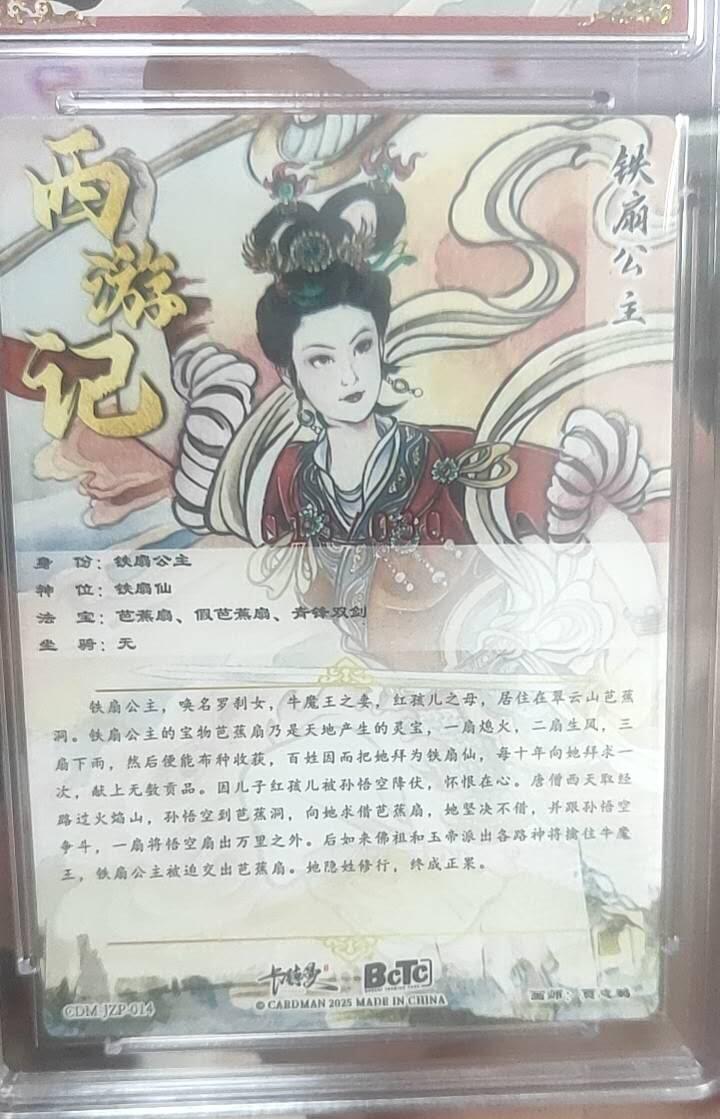 西游记
铁扇公主
013 030
身 份：铁扇公主
神 位：铁扇仙
法 宝：芭蕉扇、假芭蕉扇、青锋双剑
坐 骑：无
铁扇公主，唤名罗刹女，牛魔王之妻，红孩儿之母，居住在翠云山芭蕉
洞。铁扇公主的宝物芭蕉扇乃是天地产生的灵宝，一扇熄火，二扇生风，三
扇下雨，然后便能布种收获，百姓因而把她拜为铁扇仙，每十年向她拜求一
次，献上无数贡品。因儿子红孩儿被孙悟空降伏，怀恨在心。唐僧西天取经
路过火焰山，孙悟空到芭蕉洞，向她求借芭蕉扇，她坚决不借，并跟孙悟空
争斗，一扇将悟空扇出万里之外。后如来佛祖和玉帝派出各路神将擒住牛魔
王，铁扇公主被迫交出芭蕉扇。她隐姓修行，终成正果。
卡德曼 BCTC
© CARDMAN 2025 MADE IN CHINA
CDM-JZP-014
画师：